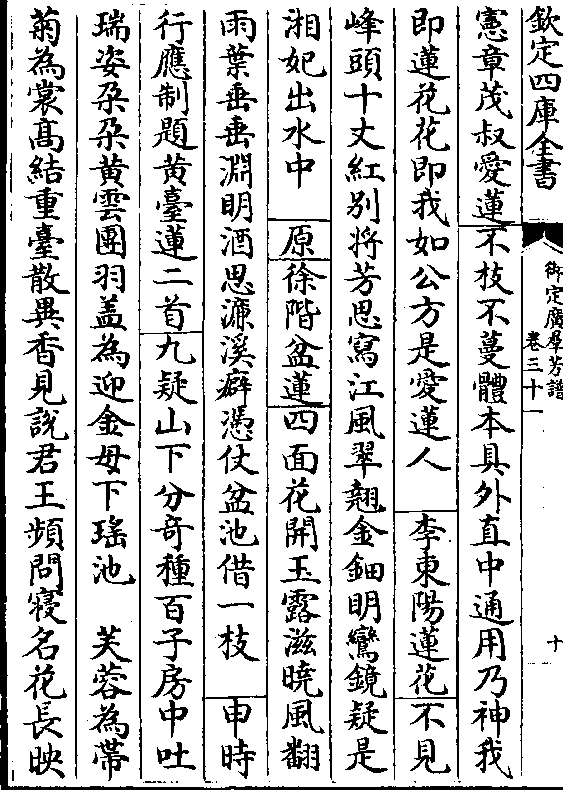 欽定四庫全書
御定廣羣芳譜
卷三十一
十
憲章茂叔愛蓮不枝不蔓體本具外直中通用乃神我
即蓮花花即我如公方是愛蓮人 李東陽蓮花不見
峰頭十丈紅別將芳思寫江風翠翹金鈿明鸞鏡疑是
湘妃出水中 原徐階盆蓮四面花開玉露滋曉風翻
雨葉垂垂淵明酒思濂溪癖憑仗盆池借一枝 申時
行應制題黃臺蓮二首九疑山下分竒種百子房中吐
瑞姿朶朶黃雲團羽盖為迎金母下瑤池 芙蓉為帶
菊為裳高結重臺散異香見說君王頻問寢名花長映